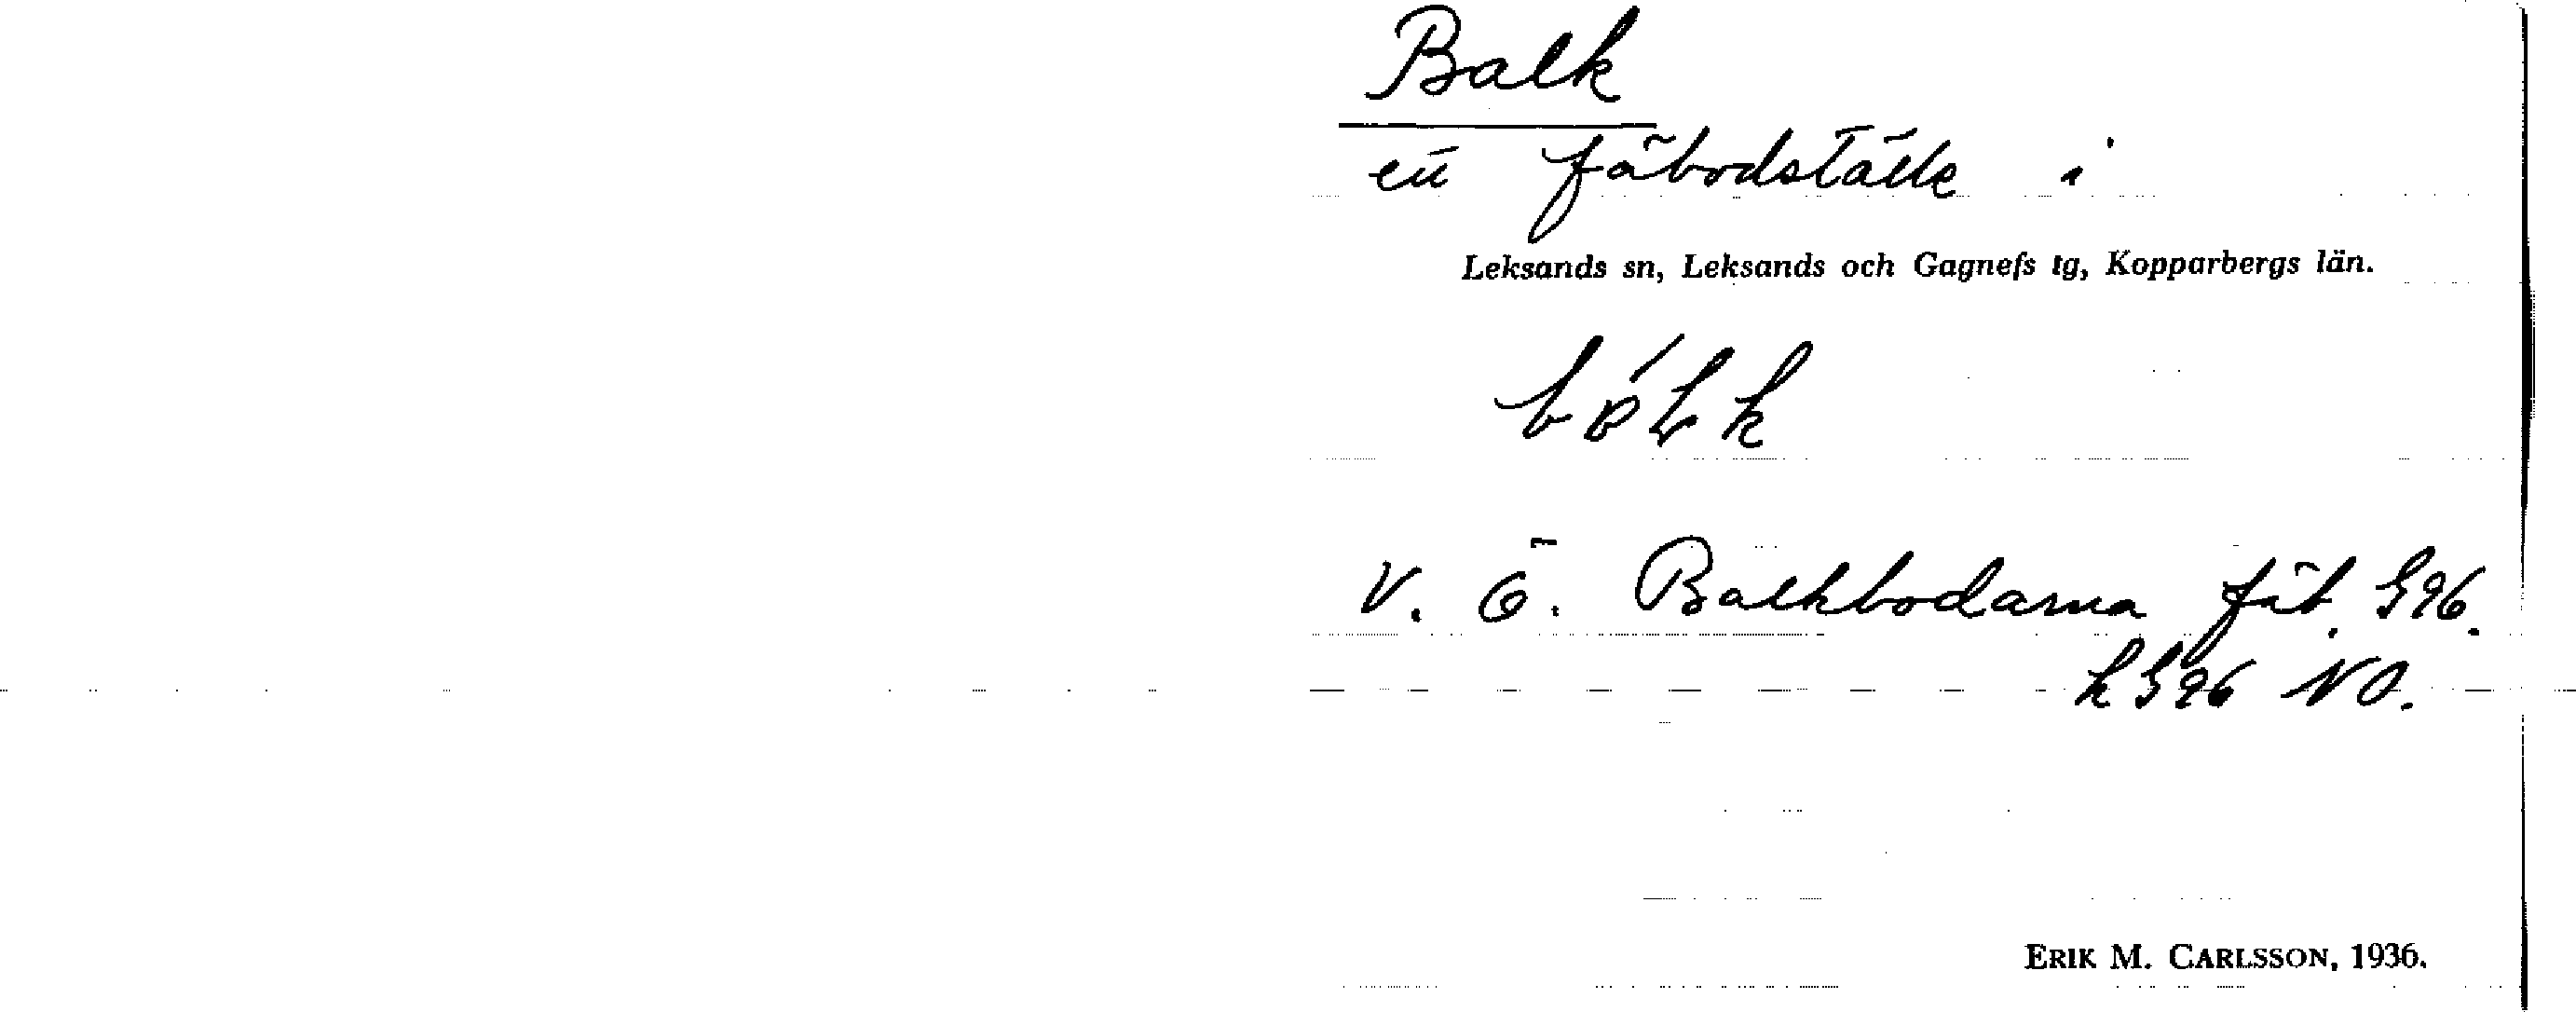 Balk
ett fäbodställe i
Leksands sn, Leksands och Gagnefs tg, Kopparbergs län.
V. Ö. Balkbodarna fäb. S96.
k S96 NO.
ERIK M. CARLSSON, 1936.